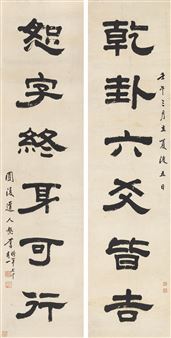 乾卦六爻皆吉
壬午三月立夏後五日
恕字終身可行
圓復道人